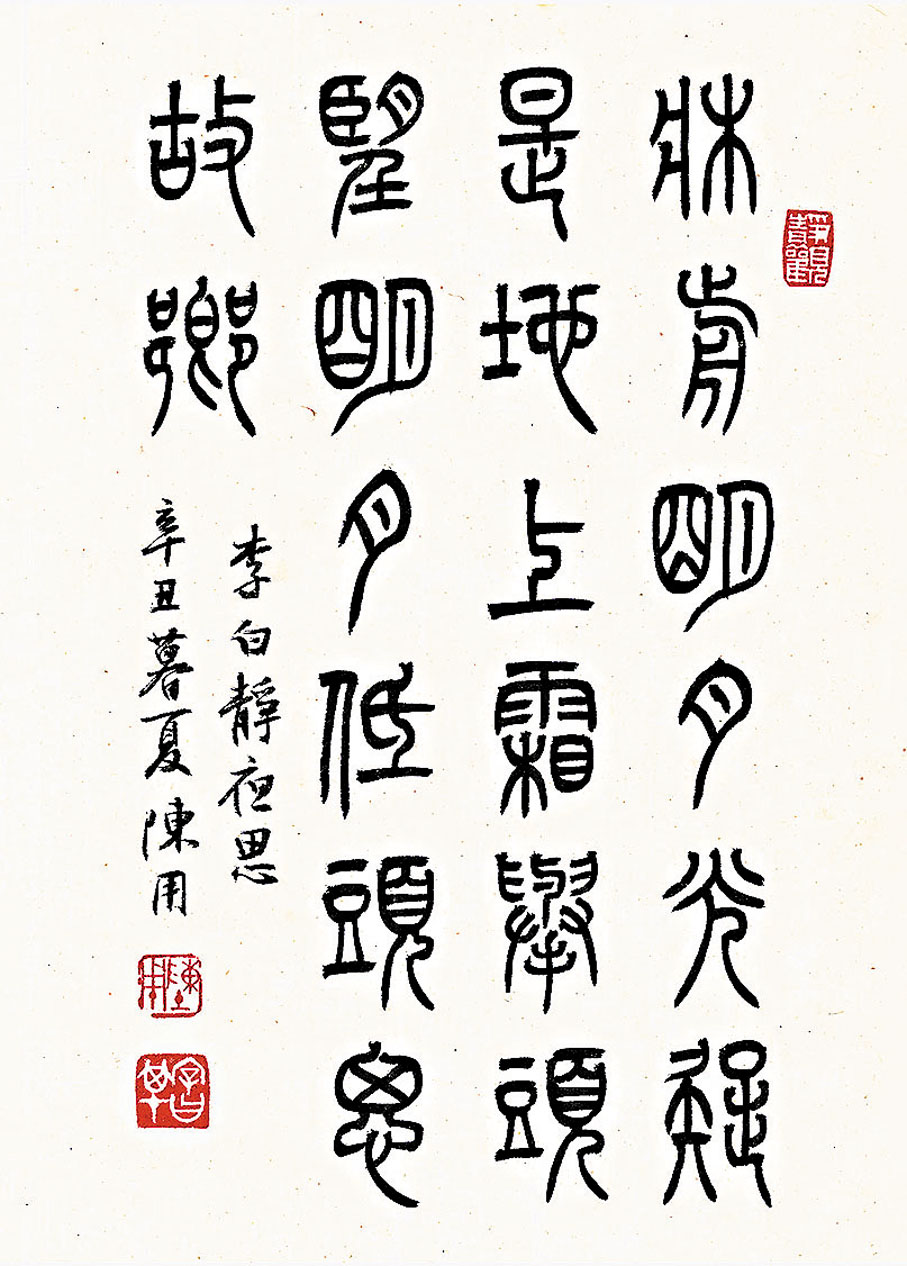 牀前明月光疑
是地上霜舉頭
望明月低頭思
故鄉
李白靜夜思
辛丑暮夏陳用